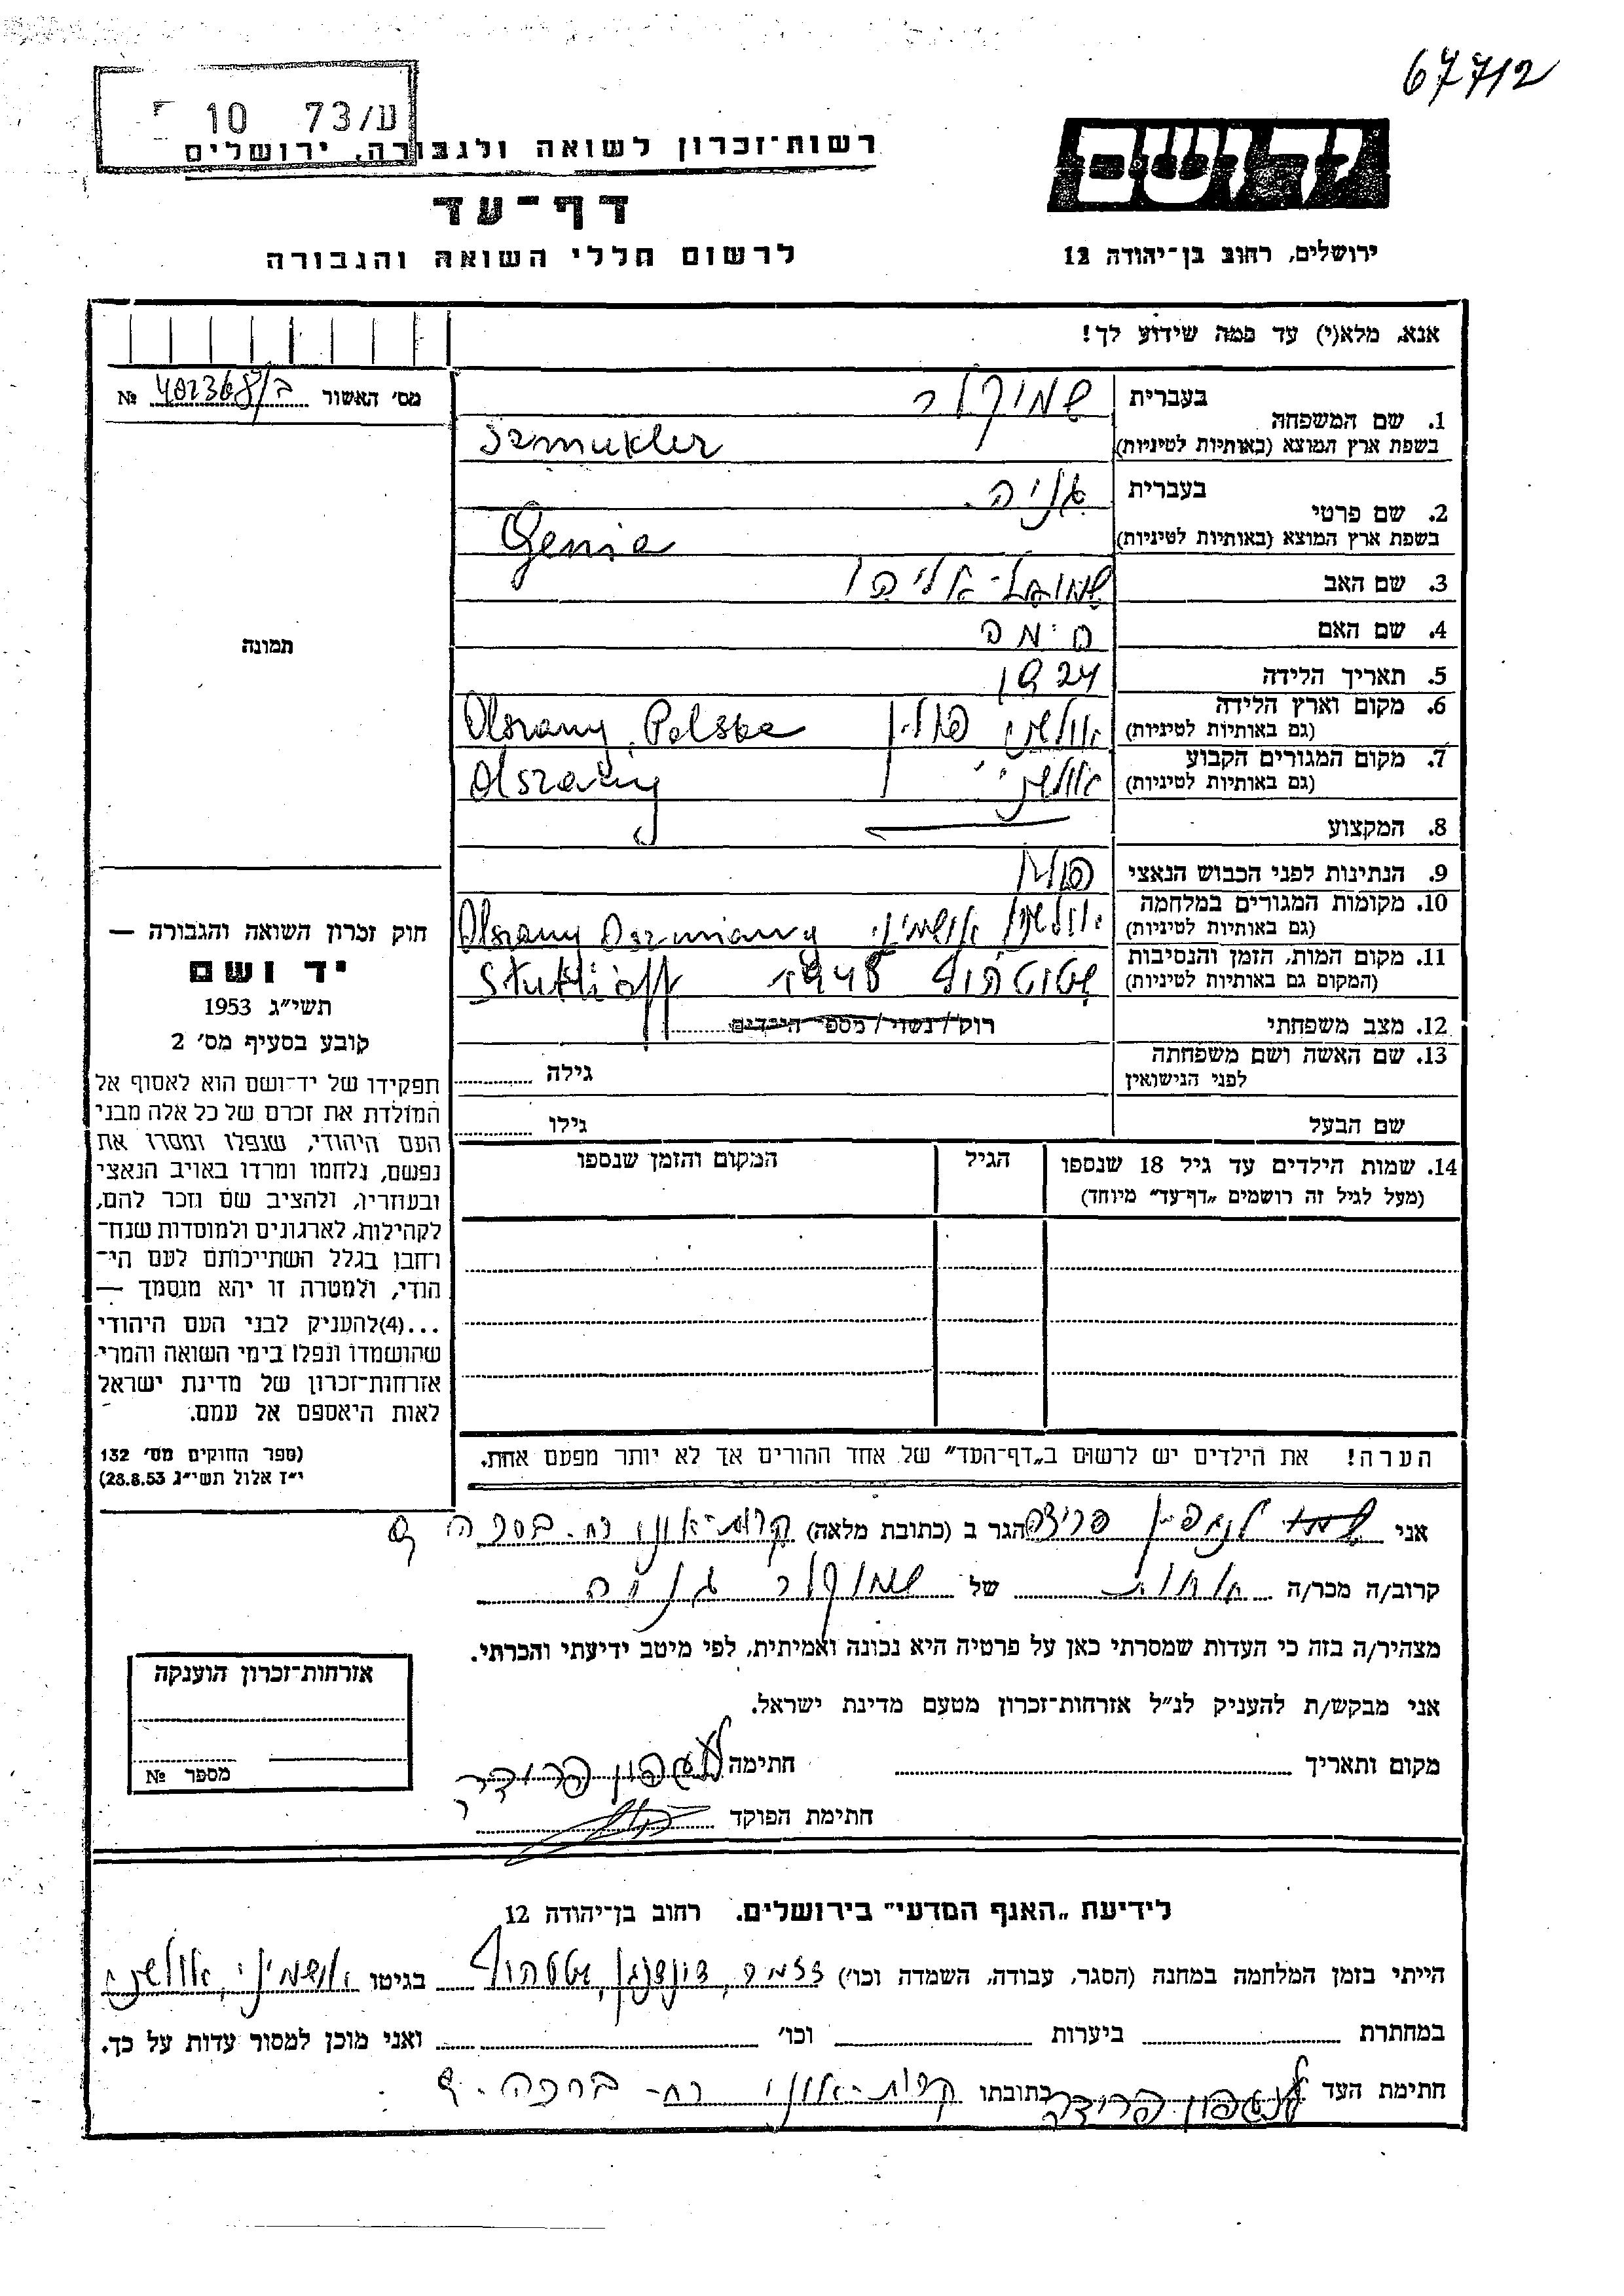 67712
ע/73 10
רשות־זכרון לשואה ולגבורה, ירושלים
יד ושם
דף־עד
לרשום חללי השואה והגבורה
ירושלים, רחוב בן־יהודה 12
אנא, מלא(י) עד כמה שידוע לך!
מס׳ האשור 402368/ב №
1. שם המשפחה בעברית שמוקלר
בשפת ארץ המוצא (באותיות לטיניות) Szmukler
2. שם פרטי בעברית גניה
בשפת ארץ המוצא (באותיות לטיניות) Genia
3. שם האב שמואל־אליהו
4. שם האם
5. תאריך הלידה 1924
6. מקום וארץ הלידה (גם באותיות לטיניות) אולשני פולין Olszany, Polska
7. מקום המגורים הקבוע (גם באותיות לטיניות) אולשני Olszany
8. המקצוע
9. הנתינות לפני הכבוש הנאצי
10. מקומות המגורים במלחמה (גם באותיות לטיניות) אולשני אושמיני Olszany Oszmiany
11. מקום המות, הזמן והנסיבות (המקום גם באותיות לטיניות) שטוטהוף Stutthoff
12. מצב משפחתי רוק/נשוי/מספר הילדים
13. שם האשה ושם משפחתה לפני הנישואין גילה
שם הבעל גילו
14. שמות הילדים עד גיל 18 שנספו (מעל לגיל זה רושמים „דף־עד״ מיוחד) הגיל המקום והזמן שנספו
הערה! את הילדים יש לרשום ב„דף־העד״ של אחד ההורים אך לא יותר מפעם אחת.
תמונה
חוק זכרון השואה והגבורה —
יד ושם
תשי״ג 1953
קובע בסעיף מס׳ 2
תפקידו של יד־ושם הוא לאסוף אל
המולדת את זכרם של כל אלה מבני
העם היהודי, שנפלו ומסרו את
נפשם, נלחמו ומרדו באויב הנאצי
ובעוזריו, ולהציב שם וזכר להם,
לקהילות, לארגונים ולמוסדות שנח־
רחבו בגלל השתייכותם לעם הי־
הודי, ולמטרה זו יהא מוסמך —
...(4) להעניק לבני העם היהודי
שהושמדו ונפלו בימי השואה והמרי
אזרחות־זכרון של מדינת ישראל
לאות היאספם אל עמם.
(ספר החוקים מס׳ 132
י״ז אלול תשי״ג 28.8.53)
אני הגר ב (כתובת מלאה) קרית־אונו רח־
קרוב/ה מכר/ה אחות של שמוקלר גניה
מצהיר/ה בזה כי העדות שמסרתי כאן על פרטיה היא נכונה ואמיתית, לפי מיטב ידיעתי והכרתי.
אני מבקש/ת להעניק לנ״ל אזרחות־זכרון מטעם מדינת ישראל.
מקום ותאריך חתימה
חתימת הפוקד
אזרחות־זכרון הוענקה
מספר №
לידיעת „האגף המדעי״ בירושלים, רחוב בן־יהודה 12
הייתי בזמן המלחמה במחנה (הסגר, עבודה, השמדה וכו׳) שטטהוף בגיטו אושמיני, אולשני
במחתרת ביערות וכו׳ ואני מוכן למסור עדות על כך.
חתימת העד כתובתו קרית־אונו רח־